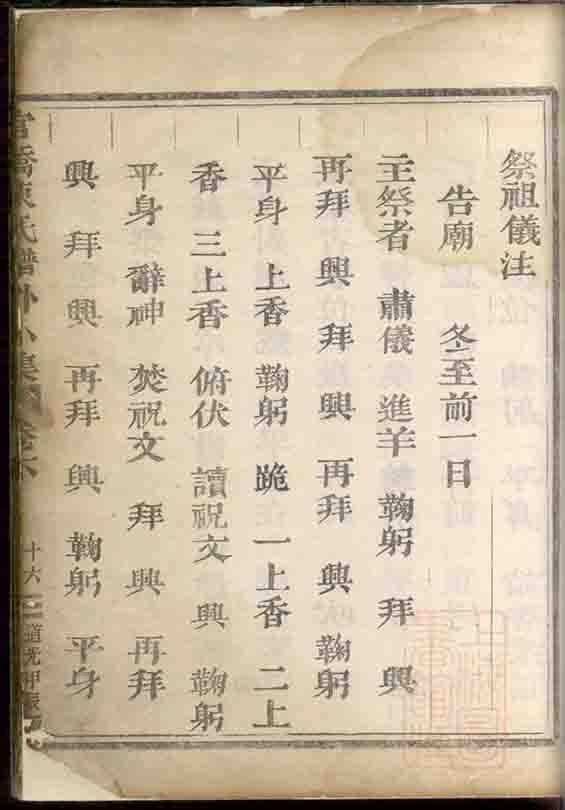 祭祖儀注
告廟 冬至前一日
主祭者 肅儀 進羊 鞠躬 拜 興
再拜 興 拜 興 再拜 興 鞠躬
平身 上香 鞠躬 跪 一上香 二上
香 三上香 俯伏 讀祝文 興 鞠躬
平身 辭神 焚祝文 拜 興 再拜
興 拜 興 再拜 興 鞠躬 平身
氏譜 十六 道光甲辰